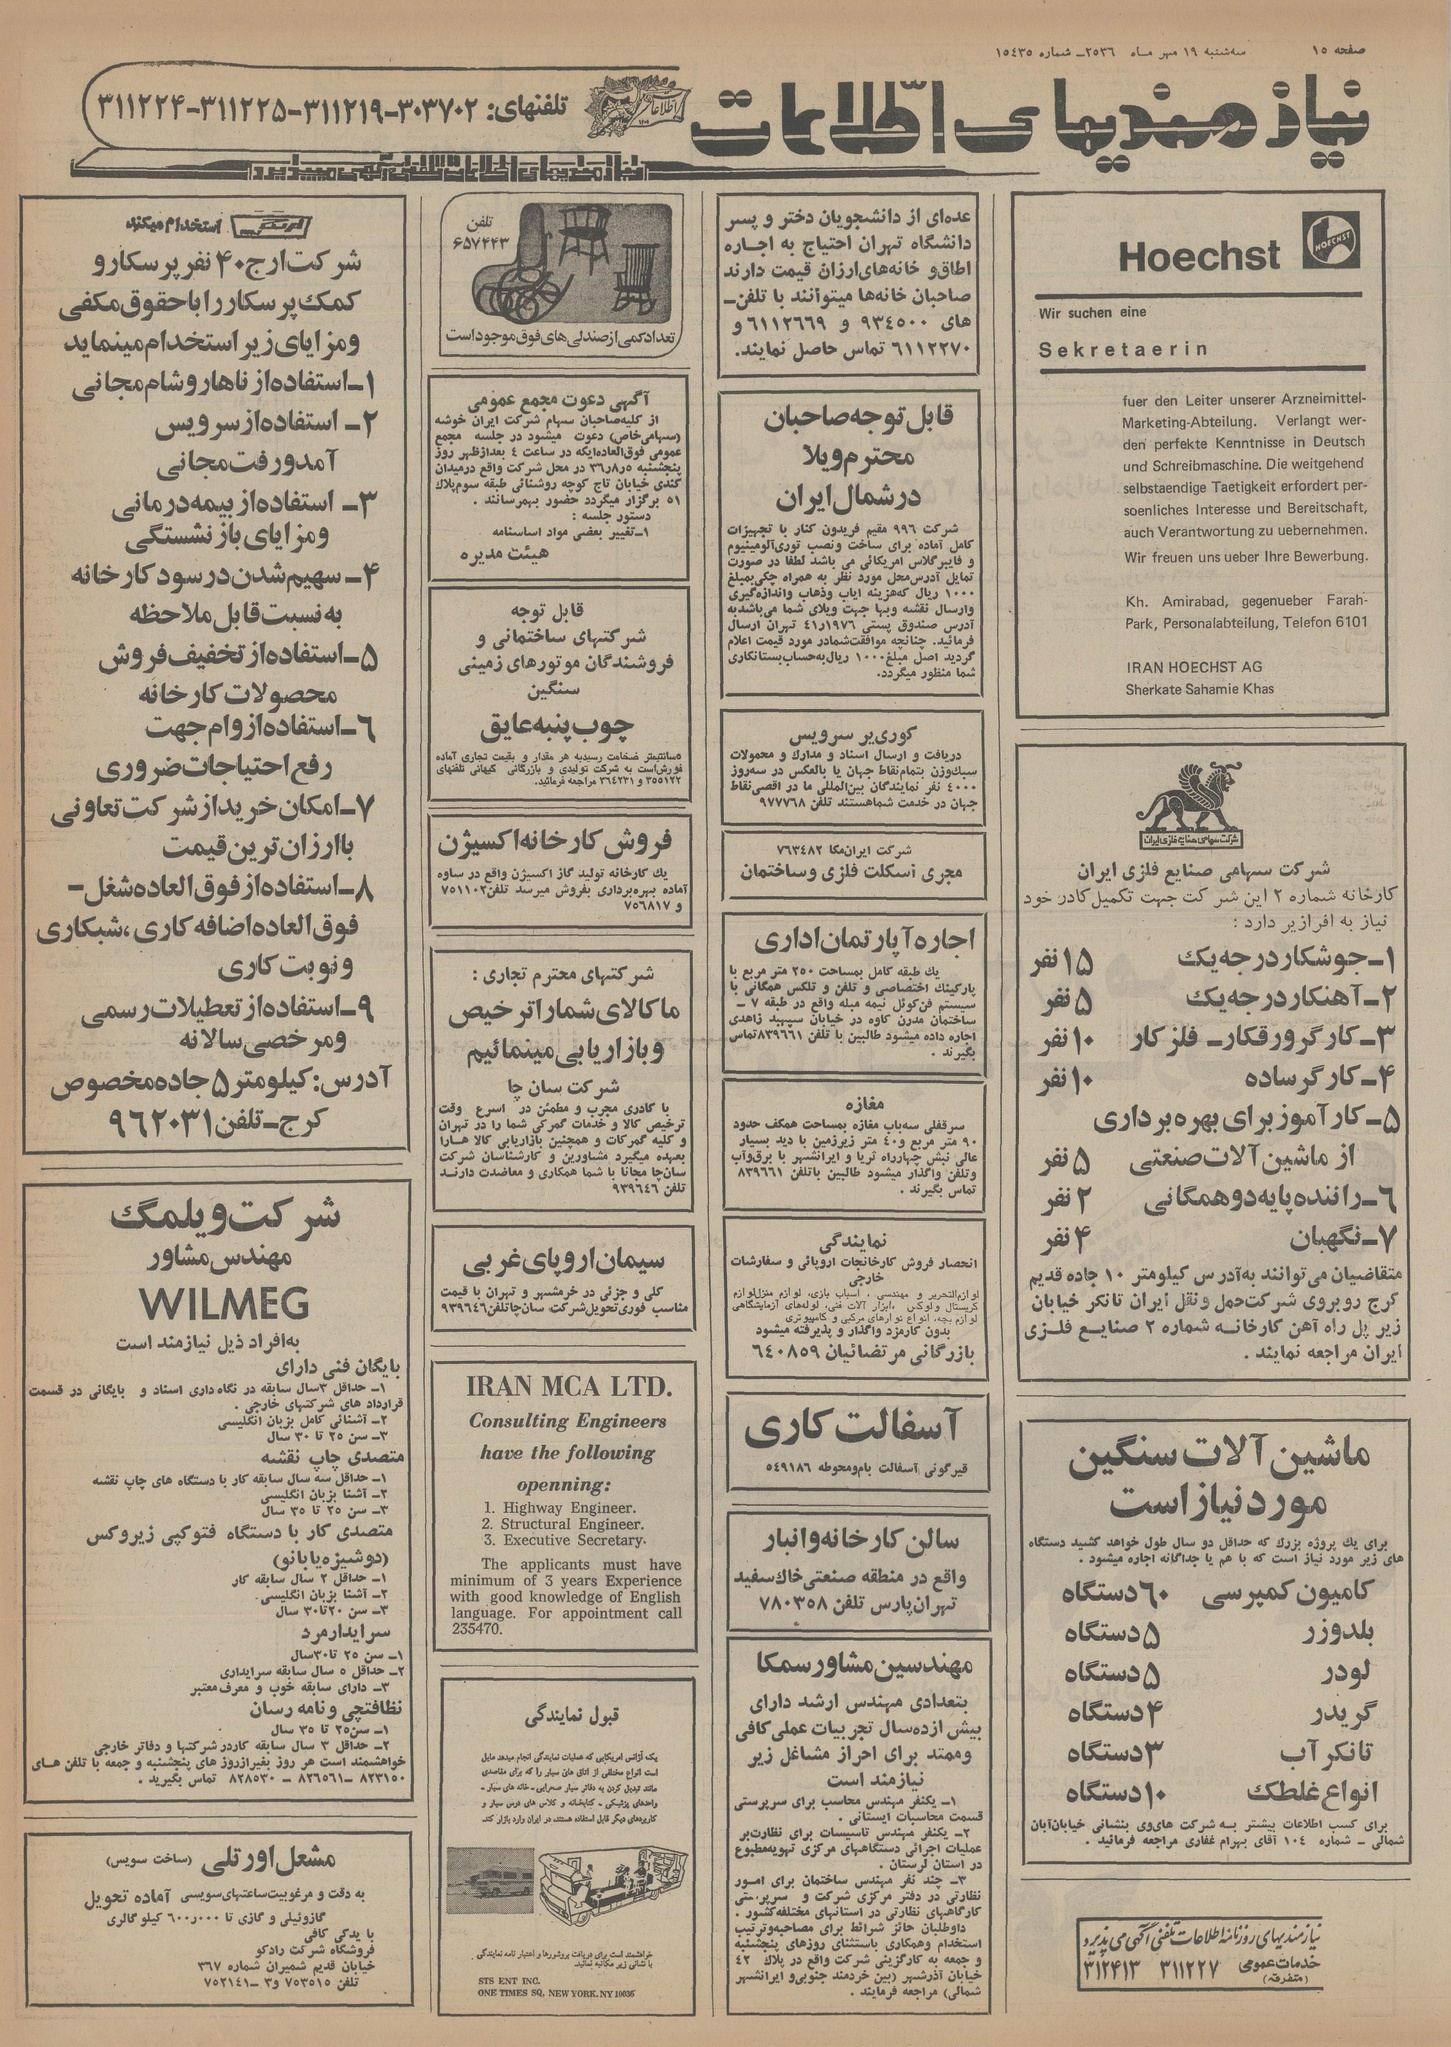 صفحه ۱۵
سه‌شنبه ۱۹ مهر ماه ۲۵۳۶ـ شماره ۱۵۴۳۵
نیازمندیهای اطلاعات
تلفنهای: ۳۰۳۷۰۲-۳۱۱۲۱۹-۳۱۱۲۲۵-۳۱۱۲۲۴
نیازمندیهای اطلاعات تلفنی آگهی میپذیرد
HOECHST
Hoechst
Wir suchen eine
Sekretaerin
fuer den Leiter unserer Arzneimittel-
Marketing-Abteilung. Verlangt wer-
den perfekte Kenntnisse in Deutsch
und Schreibmaschine. Die weitgehend
selbstaendige Taetigkeit erfordert per-
soenliches Interesse und Bereitschaft,
auch Verantwortung zu uebernehmen.
Wir freuen uns ueber Ihre Bewerbung.
Kh. Amirabad, gegenueber Farah-
Park, Personalabteilung, Telefon 6101
IRAN HOECHST AG
Sherkate Sahamie Khas
شرکت سهامی صنایع فلزی ایران
شرکت سهامی صنایع فلزی ایران
کارخانه شماره ۲ این شرکت جهت تکمیل کادر خود
نیاز به افراد زیر دارد :
۱ـ جوشکار درجه یک ۱۵ نفر
۲ـ آهنکار درجه یک ۵ نفر
۳ـ کارگر ورقکار ـ فلزکار ۱۰ نفر
۴ـ کارگر ساده ۱۰ نفر
۵ـ کارآموز برای بهره برداری
از ماشین آلات صنعتی ۵ نفر
۶ـ راننده پایه دو همگانی ۲ نفر
۷ـ نگهبان ۴ نفر
متقاضیان می‌توانند به‌آدرس کیلومتر ۱۰ جاده قدیم
کرج روبروی شرکت حمل و نقل ایران تانکر خیابان
زیر پل راه آهن کارخانه شماره ۲ صنایع فلزی
ایران مراجعه نمایند .
ماشین آلات سنگین
مورد نیاز است
برای یك پروژه بزرك که حداقل دو سال طول خواهد کشید دستگاه
های زیر مورد نیاز است که با هم یا جداگانه اجاره میشود .
کامیون کمپرسی ۶۰ دستگاه
بلدوزر ۵ دستگاه
لودر ۵ دستگاه
گریدر ۴ دستگاه
تانکر آب ۳ دستگاه
انواع غلطک ۱۰ دستگاه
برای کسب اطلاعات بیشتر به شرکت های‌وی بنشانی خیابان‌آبان
شمالی ـ شماره ۱۰٤ آقای بهرام غفاری مراجعه فرمائید .
نیازمندیهای روزنامه اطلاعات تلفنی آگهی می پذیرد
خدمات عمومی ۳۱۱۲۲۷ ۳۱۲۴۱۳
(متفرقه)
عده‌ای از دانشجویان دختر و پسر
دانشگاه تهران احتیاج به اجاره
اطاق و خانه‌های ارزان قیمت دارند
صاحبان خانه‌ها میتوانند با تلفن‌ـ
های ۹۳٤۵۰۰ و ٦۱۱۲٦٦۹ و
٦۱۱۲۲۷۰ تماس حاصل نمایند.
قابل توجه صاحبان
محترم ویلا
در شمال ایران
شرکت ۹۹٦ مقیم فریدون کنار با تجهیزات
کامل آماده برای ساخت ونصب توری‌آلومینیوم
و فایبرگلاس امریکائی می باشد لطفا در صورت
تمایل آدرس‌محل مورد نظر به همراه چکی‌بمبلغ
۱۰۰۰ ریال که‌هزینه ایاب وذهاب واندازه‌گیری
وارسال نقشه وبها جهت ویلای شما می‌باشدبه
آدرس صندوق پستی ٤۱ر۱۹۷٦ تهران ارسال
فرمائید. چنانچه موافقت‌شمادر مورد قیمت اعلام
گردید اصل مبلغ۱۰۰۰ ریال‌به‌حساب‌بستانکاری
شما منظور میگردد.
کوری‌یر سرویس
دریافت و ارسال اسناد و مدارك و محمولات
سبك‌وزن بتمام‌نقاط جهان یا بالعکس در سه‌روز
٤۰۰۰ نفر نمایندگان بین‌المللی ما در اقصی‌نقاط
جهان در خدمت شماهستند تلفن ۹۷۷۷٦۸
شرکت ایران‌مکا ۷٦۳٤۸۲
مجری اسکلت فلزی وساختمان
اجاره آپارتمان اداری
یك طبقه کامل بمساحت ۲۵۰ متر مربع با
پارکینك اختصاصی و تلفن و تلکس همگانی با
سیستم فن‌کوئل نیمه مبله واقع در طبقه ۷ ـ
ساختمان مدرن کاوه در خیابان سپهبد زاهدی
اجاره داده میشود طالبین با تلفن ۸۳۹٦٦۱تماس
بگیرند .
مغازه
سرقفلی سه‌باب مغازه بمساحت همکف حدود
۹۰ متر مربع و٤۰ متر زیرزمین با دید بسیار
عالی نبش چهارراه ثریا و ایرانشهر با برق‌وآب
وتلفن واگذار میشود طالبین باتلفن ۸۳۹٦٦۱
تماس بگیرند .
نمایندگی
انحصار فروش کارخانجات اروپائی و سفارشات
خارجی
لوازم‌التحریر و مهندسی ، اسباب بازی، لوازم منزل‌لوازم
کریستال ولوکس ،ابزار آلات فنی، لوله‌های آزمایشگاهی
لوازم بچه، انواع نوارهای مرکبی و کامپیوتری
بدون کارمزد واگذار و پذیرفته میشود
بازرگانی مرتضائیان ٦٤۰۸۵۹
آسفالت کاری
قیرگونی آسفالت بام‌ومحوطه ۵٤۹۱۸٦
سالن کارخانه وانبار
واقع در منطقه صنعتی خاك‌سفید
تهران‌پارس تلفن ۷۸۰۳۵۸
مهندسین مشاور سمکا
بتعدادی مهندس ارشد دارای
بیش ازده‌سال تجربیات عملی‌کافی
وممتد برای احراز مشاغل زیر
نیازمند است
۱ـ یکنفر مهندس محاسب برای سرپرستی
قسمت محاسبات ایستانی .
۲ـ یکنفر مهندس تاسیسات برای نظارت‌بر
عملیات اجرائی دستگاههای مرکزی تهویه‌مطبوع
در استان لرستان .
۳ـ چند نفر مهندس ساختمان برای امور
نظارتی در دفتر مرکزی شرکت و سرپرستی
کارگاههای نظارتی در استانهای مختلفه‌کشور .
داوطلبان حائز شرائط برای مصاحبه‌وترتیب
استخدام وهمکاری باستثنای روزهای پنجشنبه
و جمعه به کارگزینی شرکت واقع در پلاك ٤۲
خیابان آذرشهر (بین خردمند جنوبی‌و ایرانشهر
شمالی) مراجعه فرمایند .
تلفن
۶۵۷۴۴۳
تعداد کمی از صندلی های فوق موجود است
آگهی دعوت مجمع عمومی
از کلیه‌صاحبان سهام شرکت ایران خوشه
(سهامی‌خاص) دعوت میشود در جلسه مجمع
عمومی فوق‌العاده‌ایکه در ساعت ٤ بعدازظهر روز
پنجشنبه ۵ر۸ر۳٦ در محل شرکت واقع درمیدان
کندی خیابان تاج کوچه روشنائی طبقه سوم‌پلاك
۵۱ برگزار میگردد حضور بهمرسانند .
دستور جلسه :
۱ـ‌تغییر بعضی مواد اساسنامه
هیئت مدیره
قابل توجه
شرکتهای ساختمانی و
فروشندگان موتورهای زمینی
سنگین
چوب پنبه عایق
۵سانتیمتر ضخامت رسیدبه هر مقدار و بقیمت تجاری آماده
فروش‌است به شرکت تولیدی و بازرگانی کیهانی تلفنهای
۳۵۵۱۲۲ و ۳٦٤۲۳۱ مراجعه فرمائید.
فروش کارخانه اکسیژن
یك کارخانه تولید گاز اکسیژن واقع در ساوه
آماده بهره‌برداری بفروش میرسد تلفن۷۵۱۱۰۲
و ۷۵٦۸۱۷
شرکتهای محترم تجاری :
ما کالای شما را ترخیص
و بازاریابی مینمائیم
شرکت سان چا
با کادری مجرب و مطمئن در اسرع وقت
ترخیص کالا و خدمات گمرکی شما را در تهران
و کلیه گمرکات و همچنین بازاریابی کالا هارا
بعهده میگیرد مشاورین و کارشناسان شرکت
سان‌چا مجانا با شما همکاری و معاضدت دارند
تلفن ۹۳۹٦٤٦
سیمان اروپای غربی
کلی و جزئی در خرمشهر و تهران با قیمت
مناسب فوری‌تحویل‌شرکت سان‌چاتلفن۹۳۹٦٤٦
IRAN MCA LTD.
Consulting Engineers
have the following
openning:
1. Highway Engineer.
2. Structural Engineer.
3. Executive Secretary.
The applicants must have
minimum of 3 years Experience
with good knowledge of English
language. For appointment call
235470.
قبول نمایندگی
یک آژانس امریکایی که عملیات نمایندگی انجام میدهد مایل
است انواع مختلفی از اتاق های سیار را که برای مقاصدی
مانند تبدیل کردن به دفاتر سیار صحرایی - خانه های سیار -
واحدهای پزشکی - کتابخانه و کلاس های درس سیار و
کاربردهای دیگر قابل استفاده هستند، در ایران وارد بازار کند.
خواهشمند است برای دریافت بروشورها و اعتبار نامه نمایندگی
با نشانی زیر مکاتبه نمائید
STS ENT INC.
ONE TIMES SQ, NEW YORK, NY 10036
ارج استخدام میکند
شرکت ارج ۴۰ نفر پرسکار و
کمک پرسکار را با حقوق مکفی
و مزایای زیر استخدام مینماید
۱ـ استفاده از ناهار و شام مجانی
۲ـ استفاده از سرویس
آمد و رفت مجانی
۳ـ استفاده از بیمه درمانی
و مزایای بازنشستگی
۴ـ سهیم شدن در سود کارخانه
به نسبت قابل ملاحظه
۵ـ استفاده از تخفیف فروش
محصولات کارخانه
۶ـ استفاده از وام جهت
رفع احتیاجات ضروری
۷ـ امکان خرید از شرکت تعاونی
با ارزان ترین قیمت
۸ـ استفاده از فوق العاده شغل-
فوق العاده اضافه کاری ، شبکاری
و نوبت کاری
۹ـ استفاده از تعطیلات رسمی
و مرخصی سالانه
آدرس: کیلومتر ۵ جاده مخصوص
کرج ـ تلفن ۹۶۲۰۳۱
شرکت ویلمگ
مهندس مشاور
WILMEG
به‌افراد ذیل نیازمند است
بایگان فنی دارای
۱ـ حداقل ۳سال سابقه در نگاه داری اسناد و بایگانی در قسمت
قرارداد های شرکتهای خارجی .
۲ـ آشنائی کامل بزبان انگلیسی
۳ـ سن ۲۵ تا ۳۰ سال
متصدی چاپ نقشه
۱ـ حداقل سه سال سابقه کار با دستگاه های چاپ نقشه
۲ـ آشنا بزبان انگلیسی
۳ـ سن ۲۵ تا ۳۵ سال
متصدی کار با دستگاه فتوکپی زیروکس
(دوشیزه یا بانو)
۱ـ حداقل ۲ سال سابقه کار
۲ـ آشنا بزبان انگلیسی.
۳ـ سن ۲۰تا۳۰ سال
سرایدار مرد
۱ـ سن ۲۵ تا۳۰سال
۲ـ حداقل ۵ سال سابقه سرایداری
۳ـ دارای سابقه خوب و معرف معتبر
نظافتچی و نامه رسان
۱ـ سن۲۵ تا ۳۵ سال
۲ـ حداقل ۳ سال سابقه کاردر شرکتها و دفاتر خارجی
خواهشمند است هر روز بغیرازروز های پنجشنبه و جمعه با تلفن های
۸۲۳۱۵۰ ـ۸۲٦۵٦۱ ـ ۸۲۸۵۳۰ تماس بگیرید .
مشعل اورتلی (ساخت سویس)
به دقت و مرغوبیت‌ساعتهای‌سویسی آماده تحویل
گازوئیلی و گازی تا ۰۰۰ر٦۰۰ کیلو کالری
با یدکی کافی
فروشگاه شرکت رادکو
خیابان قدیم شمیران شماره ۳٦۷
تلفن ۷۵۳۵۱۵ و۳ ـ۷۵۲۱٤۱